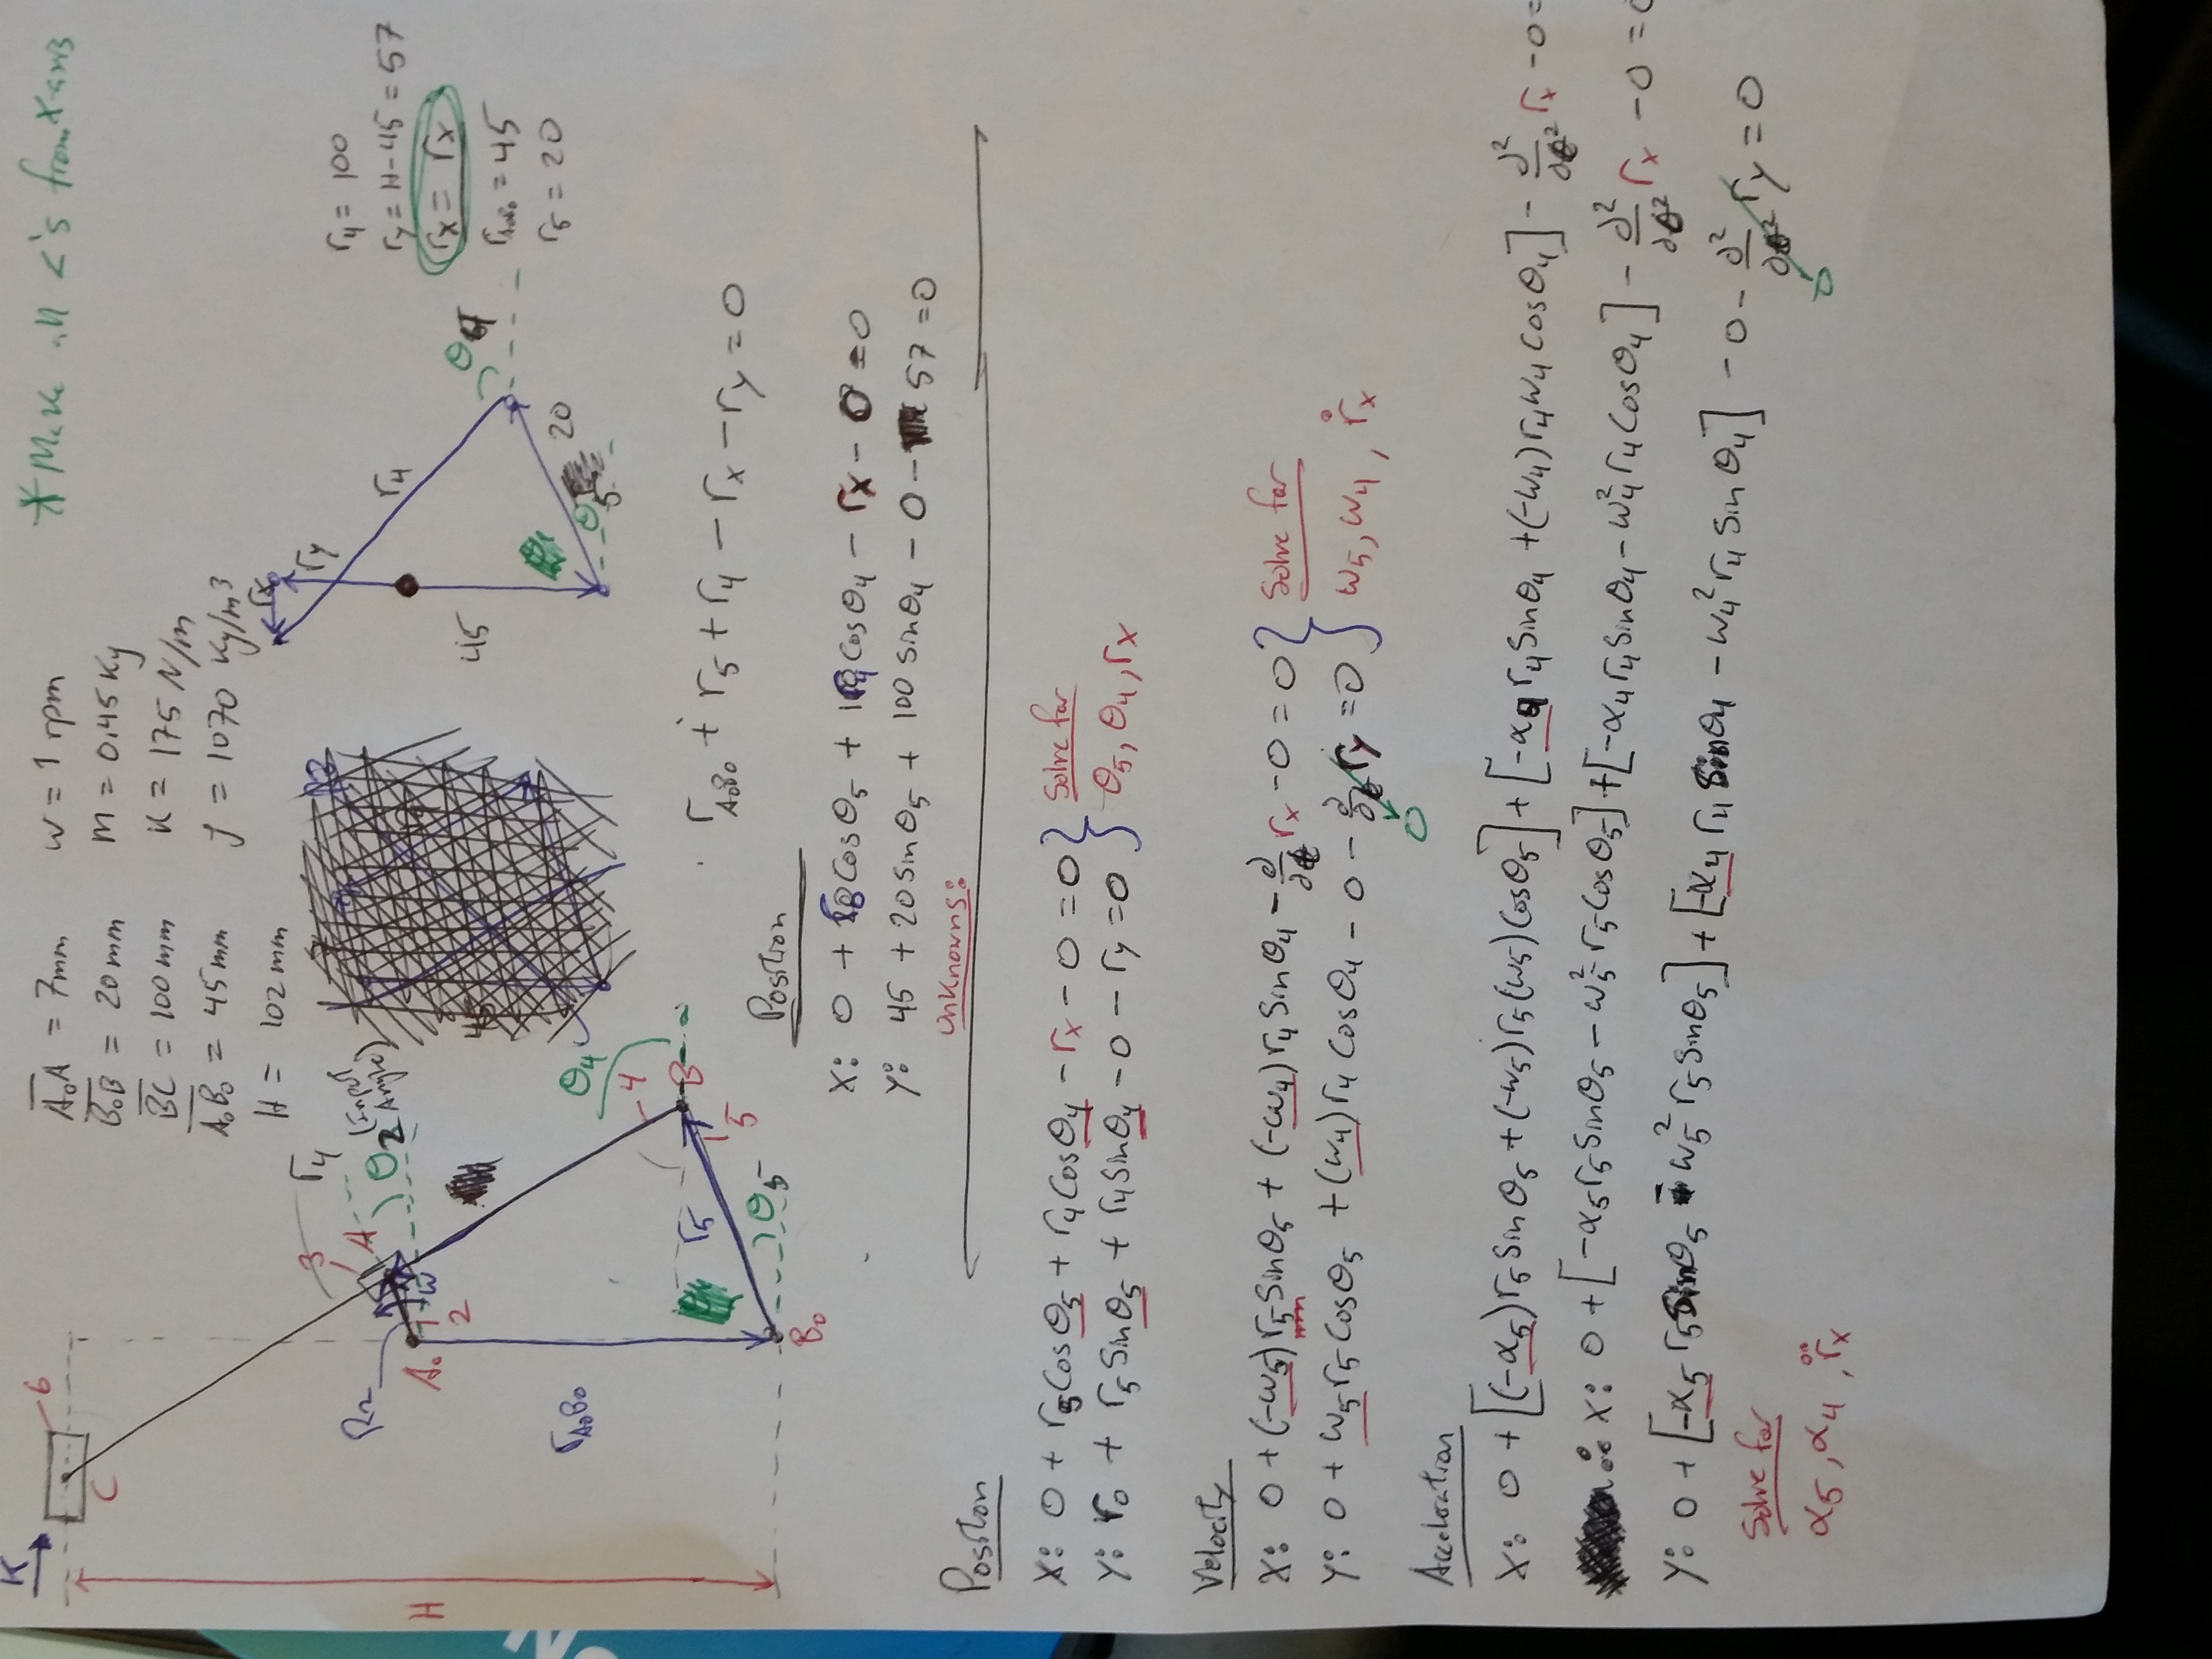 K
6
C
A₀A = 7mm
B₀B = 20mm
BC = 100mm
A₀B₀ = 45mm
H = 102mm
ω = 1 rpm
m = 0.45 Kg
K = 175 N/m
ʃ = 1070 Kg/m³
* Make all <'s from X-axis
3
r₄
A
R₂
θ₂ (Input Angle)
A₀
1
2
ω
H
r_A₀B₀
θ₄
4
B
r₅
1
5
θ₅
B₀
rx
ry
r₄
45
θ₄
20
θ₅
r₄ = 100
ry = H-45 = 57
rx = rx
r_A₀B₀ = 45
r₅ = 20
r_A₀B₀ + r₅ + r₄ - rx - ry = 0
Position
X: 0 + r₅cosθ₅ + r₄cosθ₄ - rx - 0 = 0
Y: 45 + 20sinθ₅ + 100sinθ₄ - 0 - 57 = 0
Unknowns:
Position
X: 0 + r₅cosθ₅ + r₄cosθ₄ - rx - 0 = 0 } Solve for
Y: r₀ + r₅sinθ₅ + r₄sinθ₄ - 0 - ry = 0 } θ₅, θ₄, rx
Velocity
X: 0 + (-ω₅)r₅sinθ₅ + (-ω₄)r₄sinθ₄ - ∂/∂t rx - 0 = 0 } Solve for
Y: 0 + ω₅r₅cosθ₅ + (ω₄)r₄cosθ₄ - 0 - ∂/∂t ry = 0 } ω₅, ω₄, ṙx
0
Acceleration
X: 0 + [(-α₅)r₅sinθ₅ + (-ω₅)r₅(ω₅)cosθ₅] + [-α₄r₄sinθ₄ + (-ω₄)r₄ω₄cosθ₄] - ∂²/∂t² rx - 0 =
∴ X: 0 + [-α₅r₅sinθ₅ - ω₅²r₅cosθ₅] + [-α₄r₄sinθ₄ - ω₄²r₄cosθ₄] - ∂²/∂t² rx - 0 = 0
Y: 0 + [-α₅r₅sinθ₅ - ω₅²r₅sinθ₅] + [-α₄r₄sinθ₄ - ω₄²r₄sinθ₄] - 0 - ∂²/∂t² ry = 0
0
Solve for
α₅, α₄, r̈x